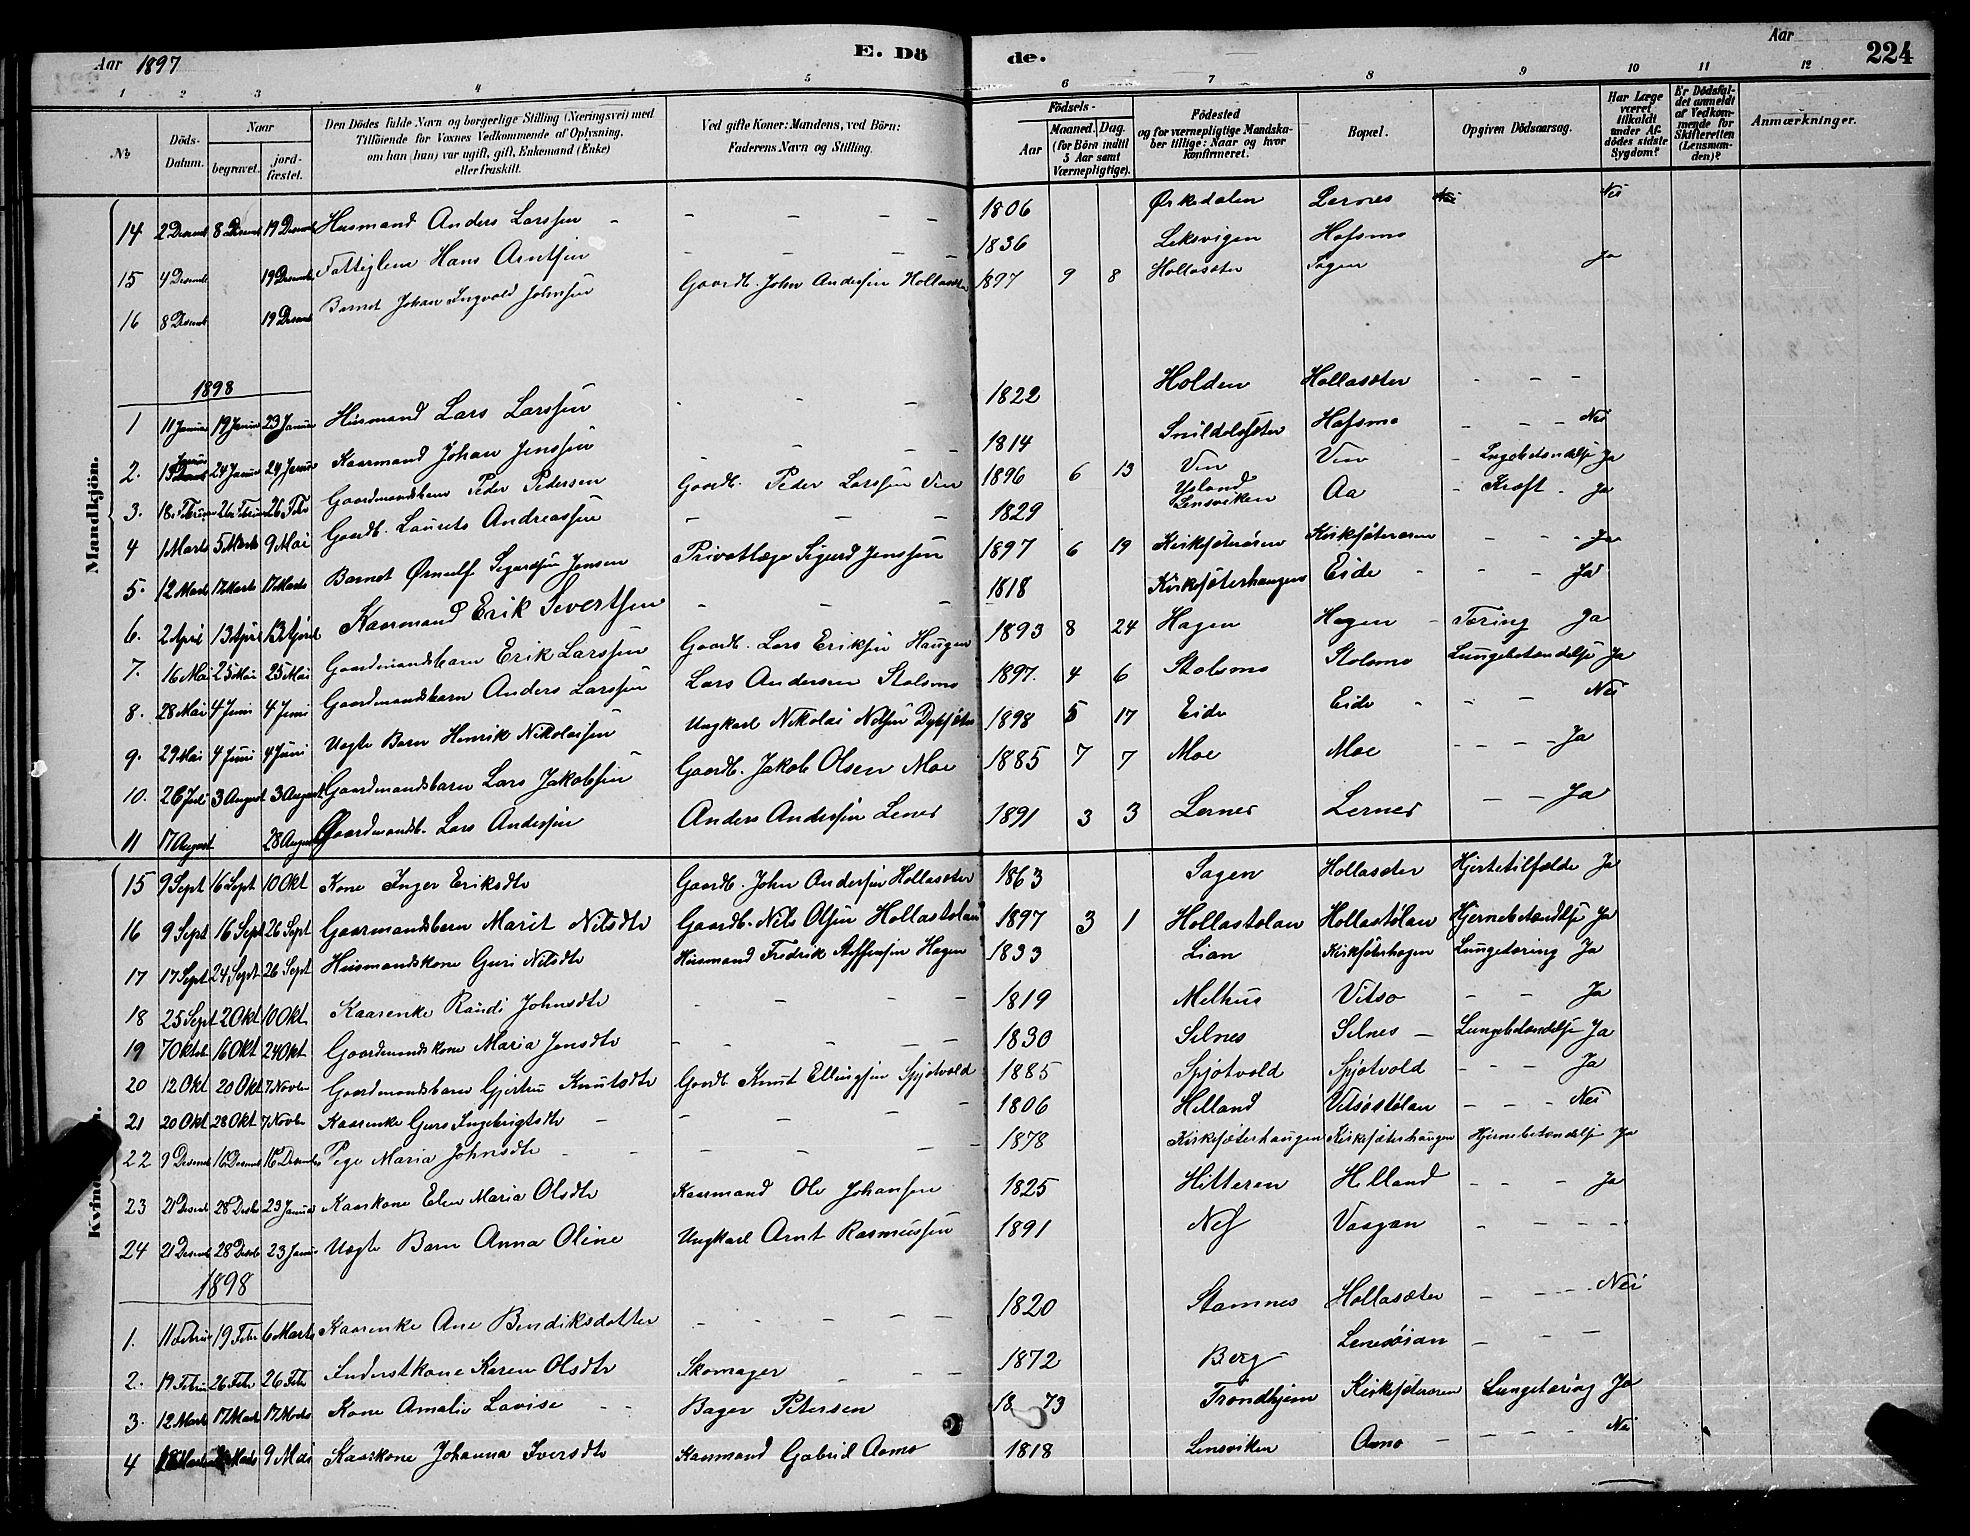 Aar 1897 E. Dö de. Aar 224
1 2 3 4 5 6 7 8 9 10 11 12
№ Döds-Datum. Naar begravet. jord-fæstet. Den Dödes fulde Navn og borgerlige Stilling (Næringsvei) med Tilföiende for Voxnes Vedkommende af Oplysning, om han (hun) var ugift, gift, Enkemand (Enke) eller fraskilt. Ved gifte Koner: Mandens, ved Börn: Faderens Navn og Stilling. Födsels- Aar Maaned. Dag. (for Börn indtil 5 Aar samt Værnepligtige). Födested og for værnepligtige Mandska-ber tillige: Naar og hvor Konfirmeret. Bopæl. Opgiven Dödsaarsag. Har Læge været tilkaldt under Af-dödes sidste Sygdom? Er Dödsfal-det anmeldt af Vedkom-mende for Skifteretten (Lensman-den)? Anmærkninger.
Mandkjön.
14 2 Desemb 8 Desemb 19 Desemb Husmand Anders Larssen - - - - - 1806 Ørkedalen Lernes Nei
15 4 Desemb 19 Desemb Fattiglem Hans Arntsen - - - - 1836 Leksvigen Hafsmo
16 8 Desemb 19 Desemb Barnet Johan Ingvald Johnsen Gaardb. John Andersen Hollasæter 1897 9 8 Hollasæter Sagen Ja
1898
1 11 Januar 19 Januar 23 Januar Husmand Lars Larssen - - - 1822 Holden Hollasæter - - -
2. 13 Januar 24 Januar 24 Januar Kaarmand Johan Jenssen - - - - 1814 Snildalsæter Hafsmo - - - Nei
3. 18. Februar 26 Februar 26 Febr Gaardmandsbarn Peder Pedersen Gaardb. Peder Larssen Vin 1896 6 13 Vin Vin - Lugebetændelse Ja
4 1 Marts 5 Marts 9 Mai Gaardb. Laurits Andreassen - - - - 1829 Ysland Lensviken Aa - Kræft - Ja
5. 12 Mart 17 Marts 17 Marts Barnet Ørnulf Sigurdsen Jensen Privatlæge Sigurd Jenssen 1897 6 19 Kirksæterøren Kirksæterøren - - - Ja
6. 2 April 13 April 13 April Kaarmand Erik Severtsen - - - 1818 Kirksæterhaugen Eide - - - Ja
7. 16 Mai 25 Mai 25 Mai Gaardmandsbarn Erik Larssen Gaardb. Lars Eriksen Haugen 1893 8 24 Hagen Hagen - Tæring Ja
8. 28 Mai 4 Juni 4 Juni Gaardmandsbarn Anders Larssen Lars Andersen Stolsmo 1897. 4 6 Stolsmo Stolsmo Lungebetændelse Ja
9. 29 Mai 4 Juni 4 Juni Uægte Barn Henrik Nikolaisen Ungkarl Nikolai 1898 5 17 Eide Eide - - - Nei
10. 26 Juli 3 August 3 August Gaardmandsbarn Lars Jakobsen Gaardb. Jakob Olsen Moe 1885 7 7 Moe Moe - - - - Ja
11 17 August 28 August Gaardmandsb. Lars Andersen Anders Andersen Lenes 1891 3 3 Lernes Lernes - - Ja
Kvindekjön.
15 9 Sept 16 Sept 10 Okt Kone Inger Eriksdtr Gaardb. John Andersen Hollasæter 1863 Sagen Hollasæter Hjertetilfælde Ja
16 9 Sept 16 Sept 26 Sept Gaarmandsbarn Marit Nilsdtr Gaardb. Nils Olsen Hollastølan 1897 3 1 Hollastolan Hollastølan Hjernebetændelse Ja
17 17 Sept 24 Sept 26 Sept Husmandskone Guri Nilsdtr Husmand Fredrik Steffensen Hagen 1833 Lian Kirksæterhagen Lungetæring Ja
18 25 Sept 2 Okt 10 Okt Kaarenke Randi Johnsdtr - - - - 1819 Melhus Vitsø - - Ja
19 7 Oktob 16 Okt 24 Okt Gaardmandskone Maria Jensdtr - - - - - 1830 Selnes Selnes - Lungebetændelse Ja
20 12 Okt 20 Okt 7 Novbr Gaardmandsbarn Gjertru Knutsdtr Gaardb Knut Ellingsen Spjøtvold 1885 Spjøtvold Spjøtvold - - - Ja
21 20 Okt 28 Okt 7 Novbr Kaarenke Guro Ingebrigtsdtr - - - - - 1806 Helland Vitsøstølan - - - Nei
22 9 Desemb 16 Desemb 16 Desember Pige Maria Johnsdtr - - - - - 1878 Kirksæterhaugen Kirksæterhaugen Hjernebetændelse Ja
23 21 Desemb 28 Desbr 23 Januar Kaarkone Elen Maria Olsdtr Kaarmand Ole Johansen 1825 Hitteren Helland - - - Ja
24 21 Desemb 28 Desbr 23 Januar Uægte Barn Anna Oline Ungkarl Arnt Rasmussen 1891 Nes Vaagan - - - -
1898
1. 11 Februar 19 Febr 6 Marts Kaarenke Ane Bendiksdatter - - - - - 1820 Stamnes Hollasæter - - - Nei
2. 19 Februar 26 Febr 26 Febr Inderstkone Karen Olsdtr Skomager - - - 1872 Berg - Lenesøian - - -
3. 12 Marts 17 Marts 17 Marts Kone Amalie Lovise - - Bager Petersen 1873 Trondhjem Kirksæterøren Lungetæring Ja
4 9 Mai Kaarkone Johanna Iversdtr Kaarmand Gabriel Aamo 1818 Lensviken Aamo - - - - Nei